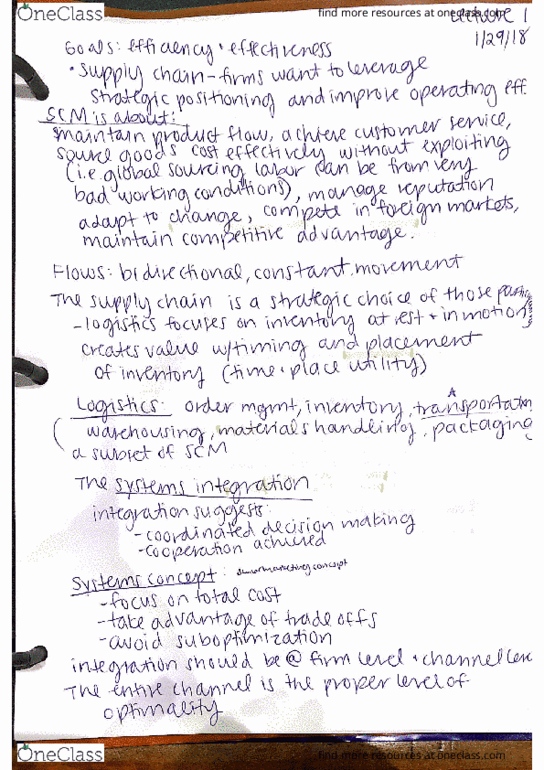 OneClass
find more resources at oneclass.com
Lecture 1
1/29/18
Goals: efficiency + effectiveness
• Supply chain - firms want to leverage
strategic positioning and improve operating eff.
SCM is about:
maintain product flow, achieve customer service,
source goods cost effectively without exploiting
(i.e. global sourcing labor can be from very
bad working conditions), manage reputation
adapt to change, compete in foreign markets,
maintain competitive advantage.
Flows: bidirectional, constant movement
The supply chain is a strategic choice of those
- logistics focuses on inventory at rest + in motion
creates value w/timing and placement
of inventory (time + place utility)
Logistics: order mgmt, inventory, transportation
warehousing, materials handling, packaging
a subset of SCM
The systems integration
integration suggests:
- coordinated decision making
- cooperation achieved
Systems concept: marketing concept
- focus on total cost
- take advantage of trade offs
- avoid suboptimization
integration should be @ firm level + channel level
The entire channel is the proper level of
optimality
OneClass
find more resources at oneclass.com